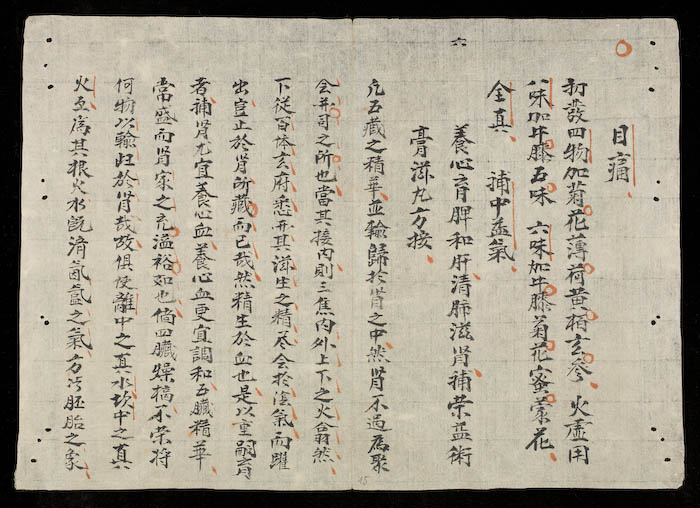 目痛
初發四物加菊花薄荷黃栢玄參 火虛用
八味加牛膝五味 六味加牛膝菊花蜜蒙花
全真 補中益氣
六
養心育脾和肝清肺滋腎補榮益術
膏滋丸方按
凡五藏之精華並輸歸於腎之中然腎不過為聚
会共司之所也當其接內則三焦內外上下之火翕然
下從百体玄府悉开其滋生之精尽会於陰氣而躍
出豈止於腎所藏而已哉然精生於血也是以重嗣育
者補腎尤宜養心血養心血更宜調和五臟精華
常盛而腎家之充溢裕如也倘四臟燥槁不荣将
何物以輸归於腎哉故俱使離中之真水坎中之真
火互為其根火水既濟氤氳之氣方成胚胎之象
15